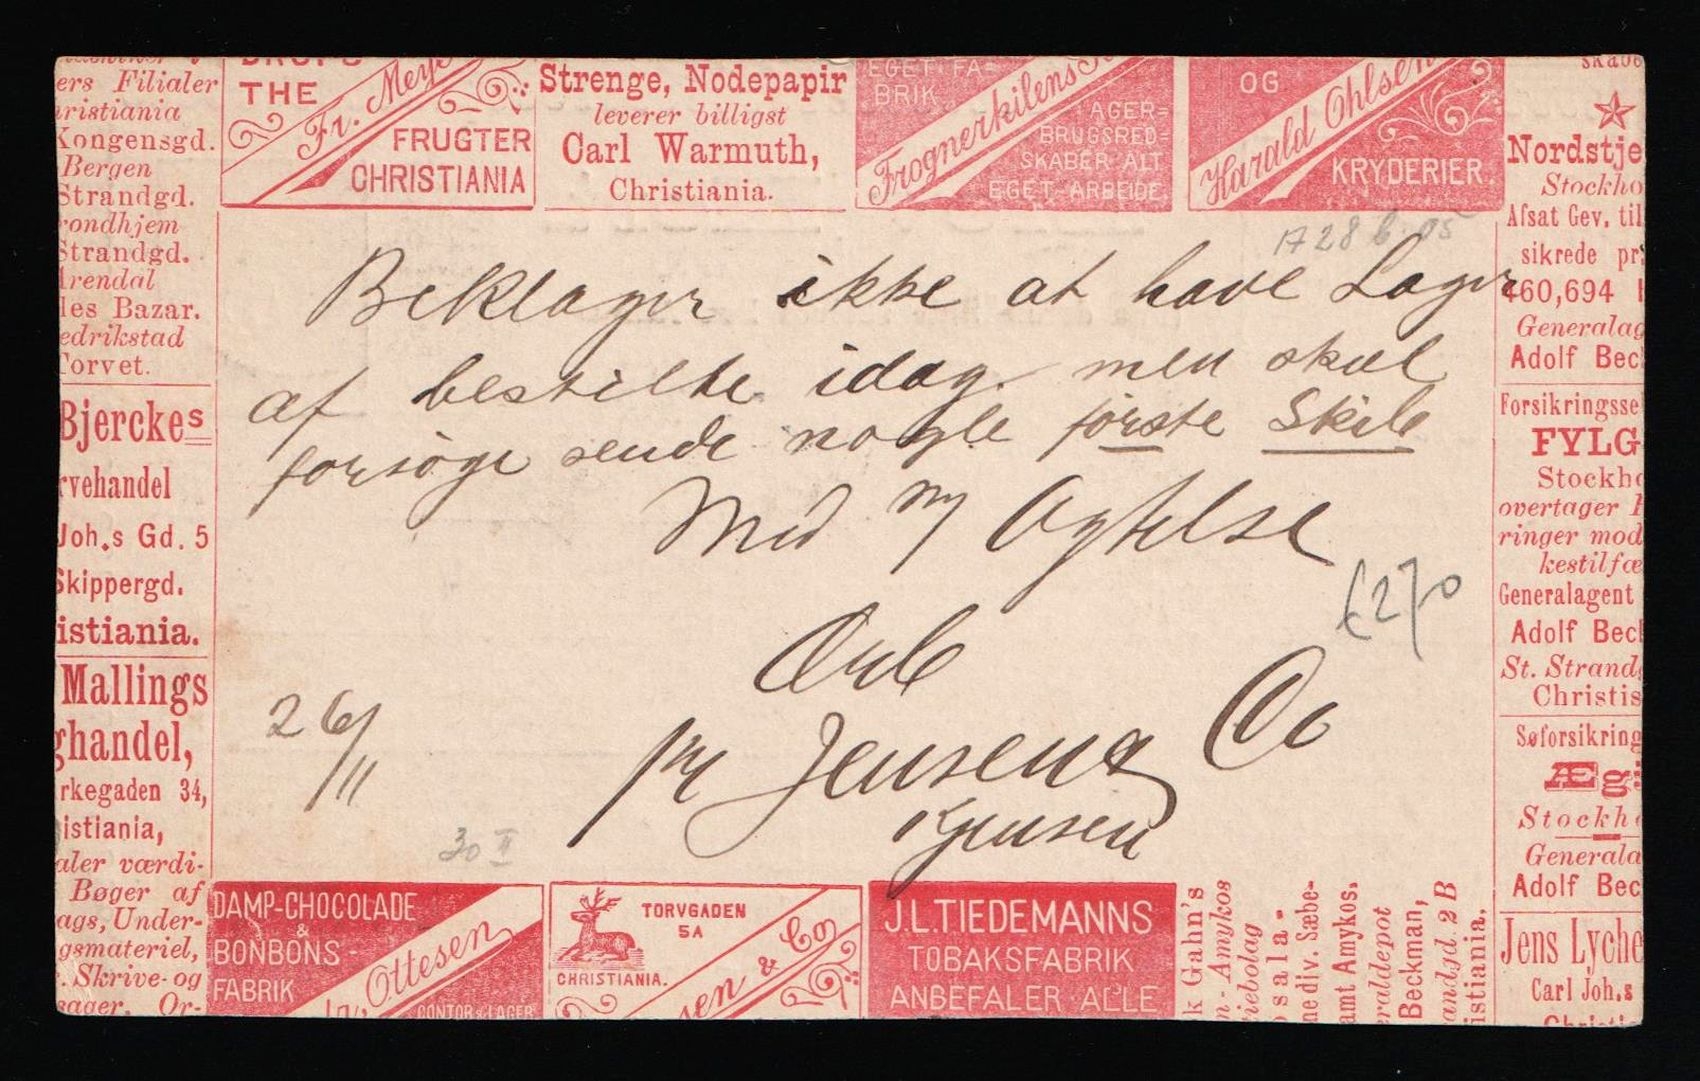 ers Filialer
ristiania
Kongensgd.
Bergen
Strandgd.
rondhjem
Strandgd.
Arendal
les Bazar.
edrikstad
Torvet.
Bjerckes
rvehandel
Joh.s Gd. 5
Skippergd.
istiania.
Mallings
ghandel,
rkegaden 34,
istiania,
aler værdi-
Bøger af
ags, Under-
gsmateriel,
. Skrive- og
sager. Or-
DROPS
THE
Fr. Meye
FRUGTER
CHRISTIANIA
Strenge, Nodepapir
leverer billigst
Carl Warmuth,
Christiania.
EGET FA-
BRIK
Frognerkilens
AGER=
BRUGSRED=
SKABER ALT
EGET-ARBEIDE
OG
Harald Ohlsen
KRYDERIER.
Nordstje
Stockho
Afsat Gev. til
sikrede pr
460,694
Generalag
Adolf Bec
Forsikringsse
FYLG
Stockho
overtager
ringer mod
kestilfæ
Generalagent
Adolf Bec
St. Strand
Christi
Søforsikring
Æg
Stockh
Generala
Adolf Bec
Jens Lyche
Carl Joh.s
17 28 6 05
Beklager ikke at have Lager
af bestilte idag men skal
forsøge sende nogle første Skib
Med Agtelse
£270
26/11
pr Jensen & Co
Jensen
30 II
DAMP-CHOCOLADE
&
BONBONS-
FABRIK
Ottesen
CONTOR & LAGER
TORVGADEN
5A
CHRISTIANIA.
sen & Co
J.L.TIEDEMANNS
TOBAKSFABRIK
ANBEFALER ALLE
k Gahn's
n-Amykos
tiebolag
psala.
ne div. Sæbe-
amt Amykos.
eraldepot
Beckman,
andgd 2 B
istiania.